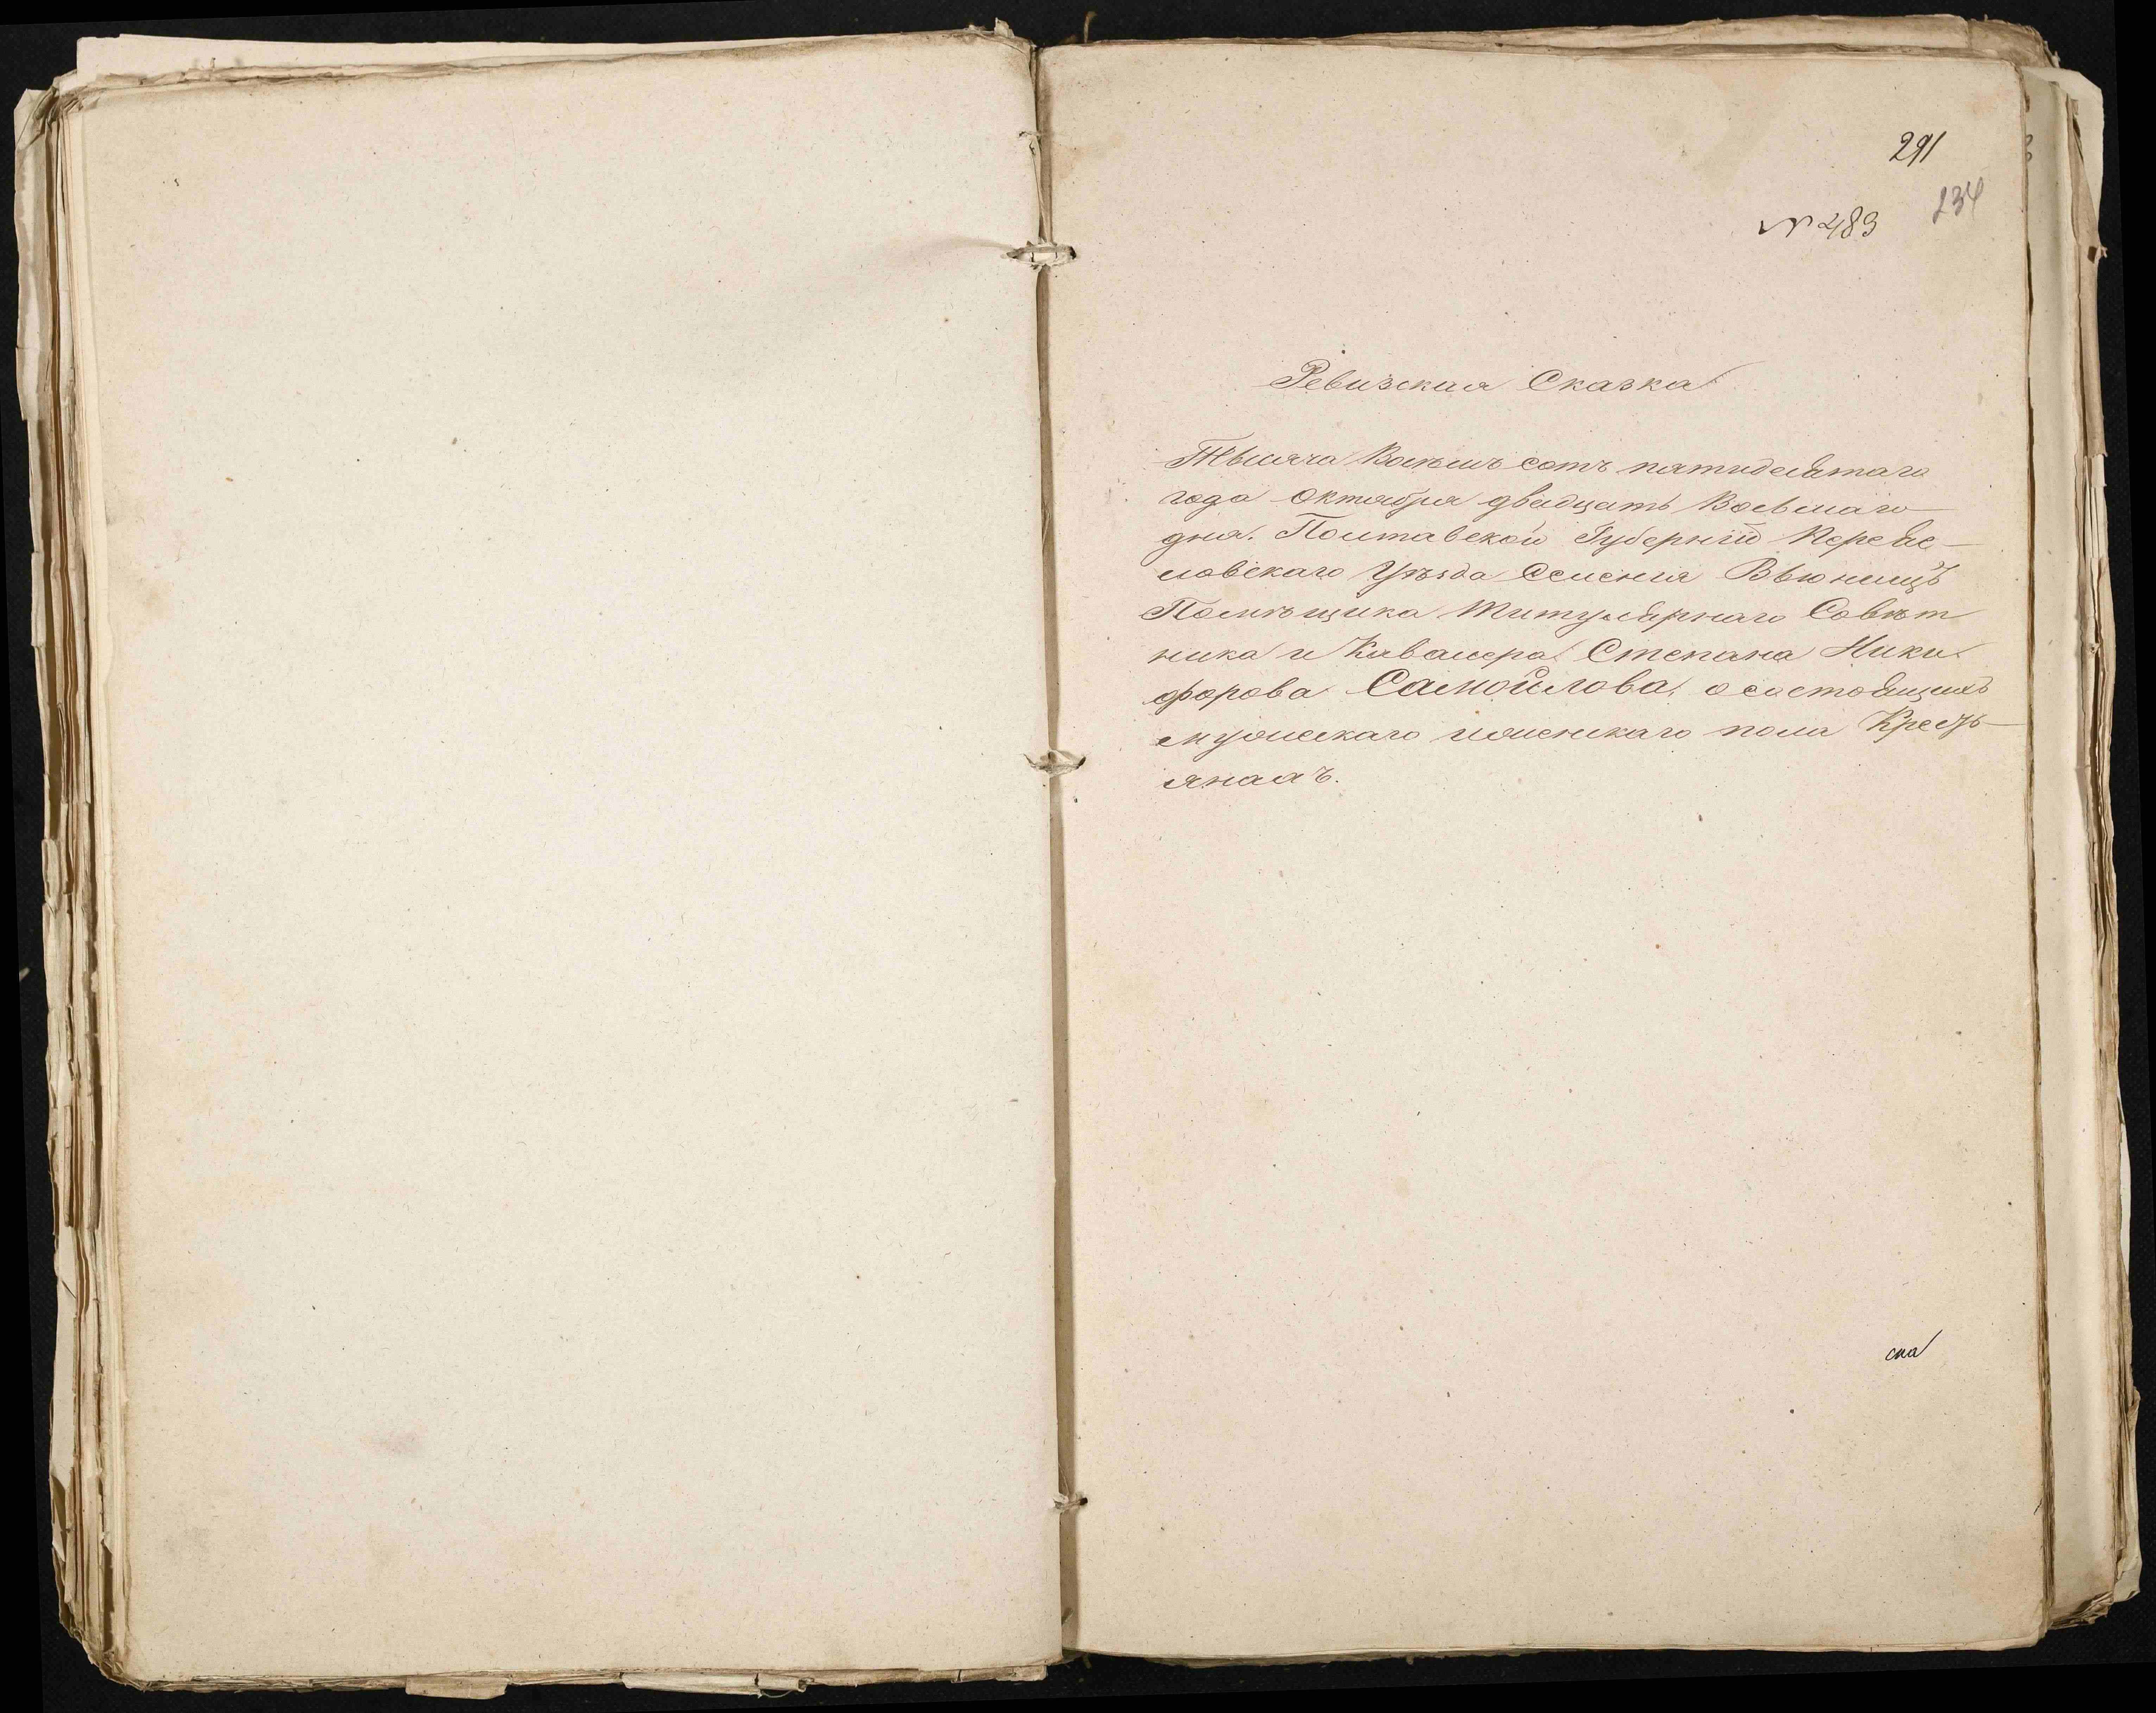 291
234
№ 483
Ревизская Сказка
Тысяча Восемь сотъ пятидесятаго
года Октября двадцать Восьмаго
дня. Полтавской Губерніи Переяс-
ловскаго Уѣзда Селенія Вьюнищъ
Помѣщика Титулярнаго Совѣт
ника и Кавалера Степана Ники
форова Самойлова, о состоящихъ
мужескаго и женскаго пола Кресть-
янахъ.